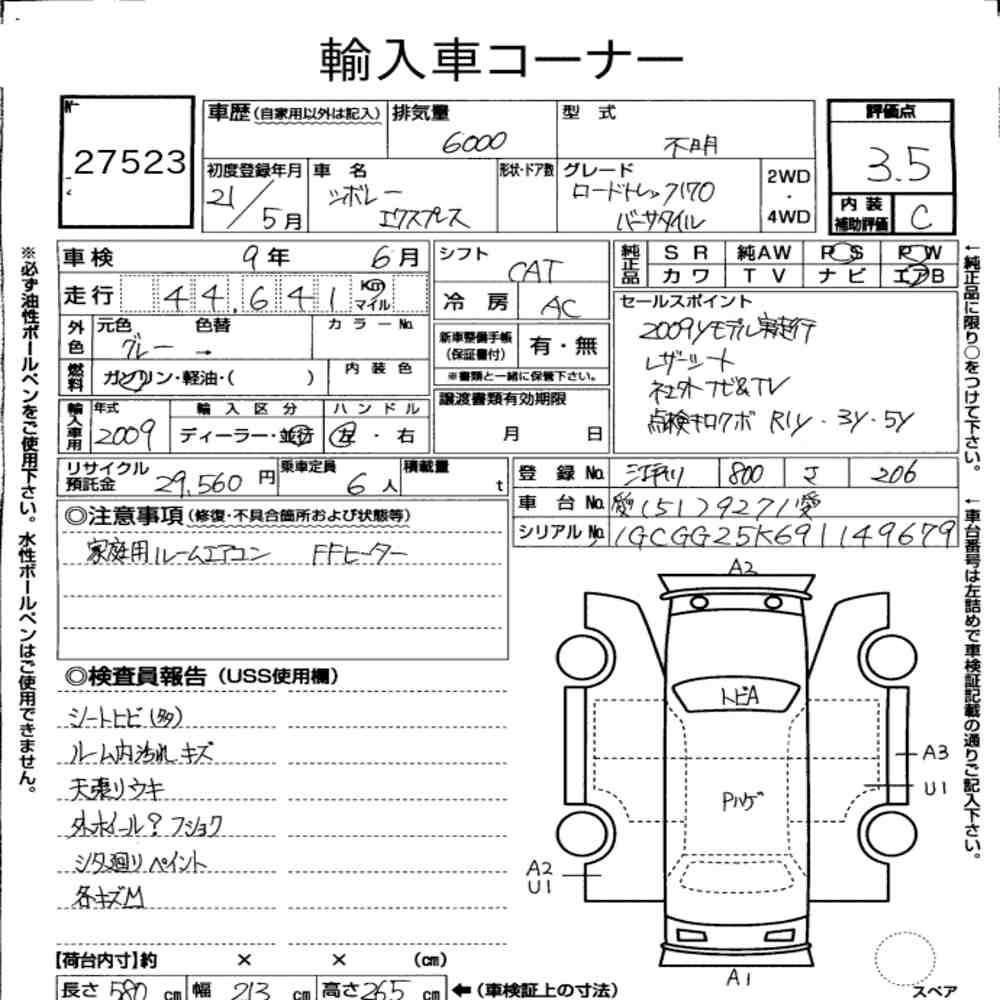 輸入車コーナー
27523
車歴(自家用以外は記入) 排気量 型式 評価点
6000 不明 3.5
初度登録年月 車名 形状・ドア数 グレード 2WD・4WD 内装補助評価 C
21/5月 シボレー エクスプレス ロードトレック170 バーサタイル
車検 9年 6月
走行 44,641 Km マイル
外色 元色 色替 カラーNo.
グレー →
燃料 ガソリン・軽油・( ) 内装色
輸入車用 年式 輸入区分 ハンドル
2009 ディーラー・並行 左・右
シフト CAT
冷房 AC
新車整備手帳(保証書付) 有・無
※書類と一緒に保管下さい。
譲渡書類有効期限
月 日
純正品 SR 純AW PS PW
カワ TV ナビ エアB
セールスポイント
2009yモデル実走行
レザーシート
社外ナビ&TV
点検キロクボ R1y・3y・5y
リサイクル預託金 29,560円 乗車定員 6人 積載量 t
登録No. 800 206
車台No. 愛(51)9271愛
シリアルNo. 1GCGG25K691149679
◎注意事項(修復・不具合箇所および状態等)
家庭用ルームエアコン FFヒーター
◎検査員報告(USS使用欄)
シートヒビ(多)
ルーム内汚れ キズ
天張りウキ
外ホイール? フショク
シタ廻りペイント
各キズM
A2
トビA
A3
U1
Pハゲ
A2
U1
A1
スペア
【荷台内寸】約 × × (cm)
長さ 580 cm 幅 213 cm 高さ 265 cm ←(車検証上の寸法)
※必ず油性ボールペンをご使用下さい。水性ボールペンはご使用できません。
←純正品に限り○をつけて下さい。
←車台番号は左詰めで車検証記載の通りご記入下さい。